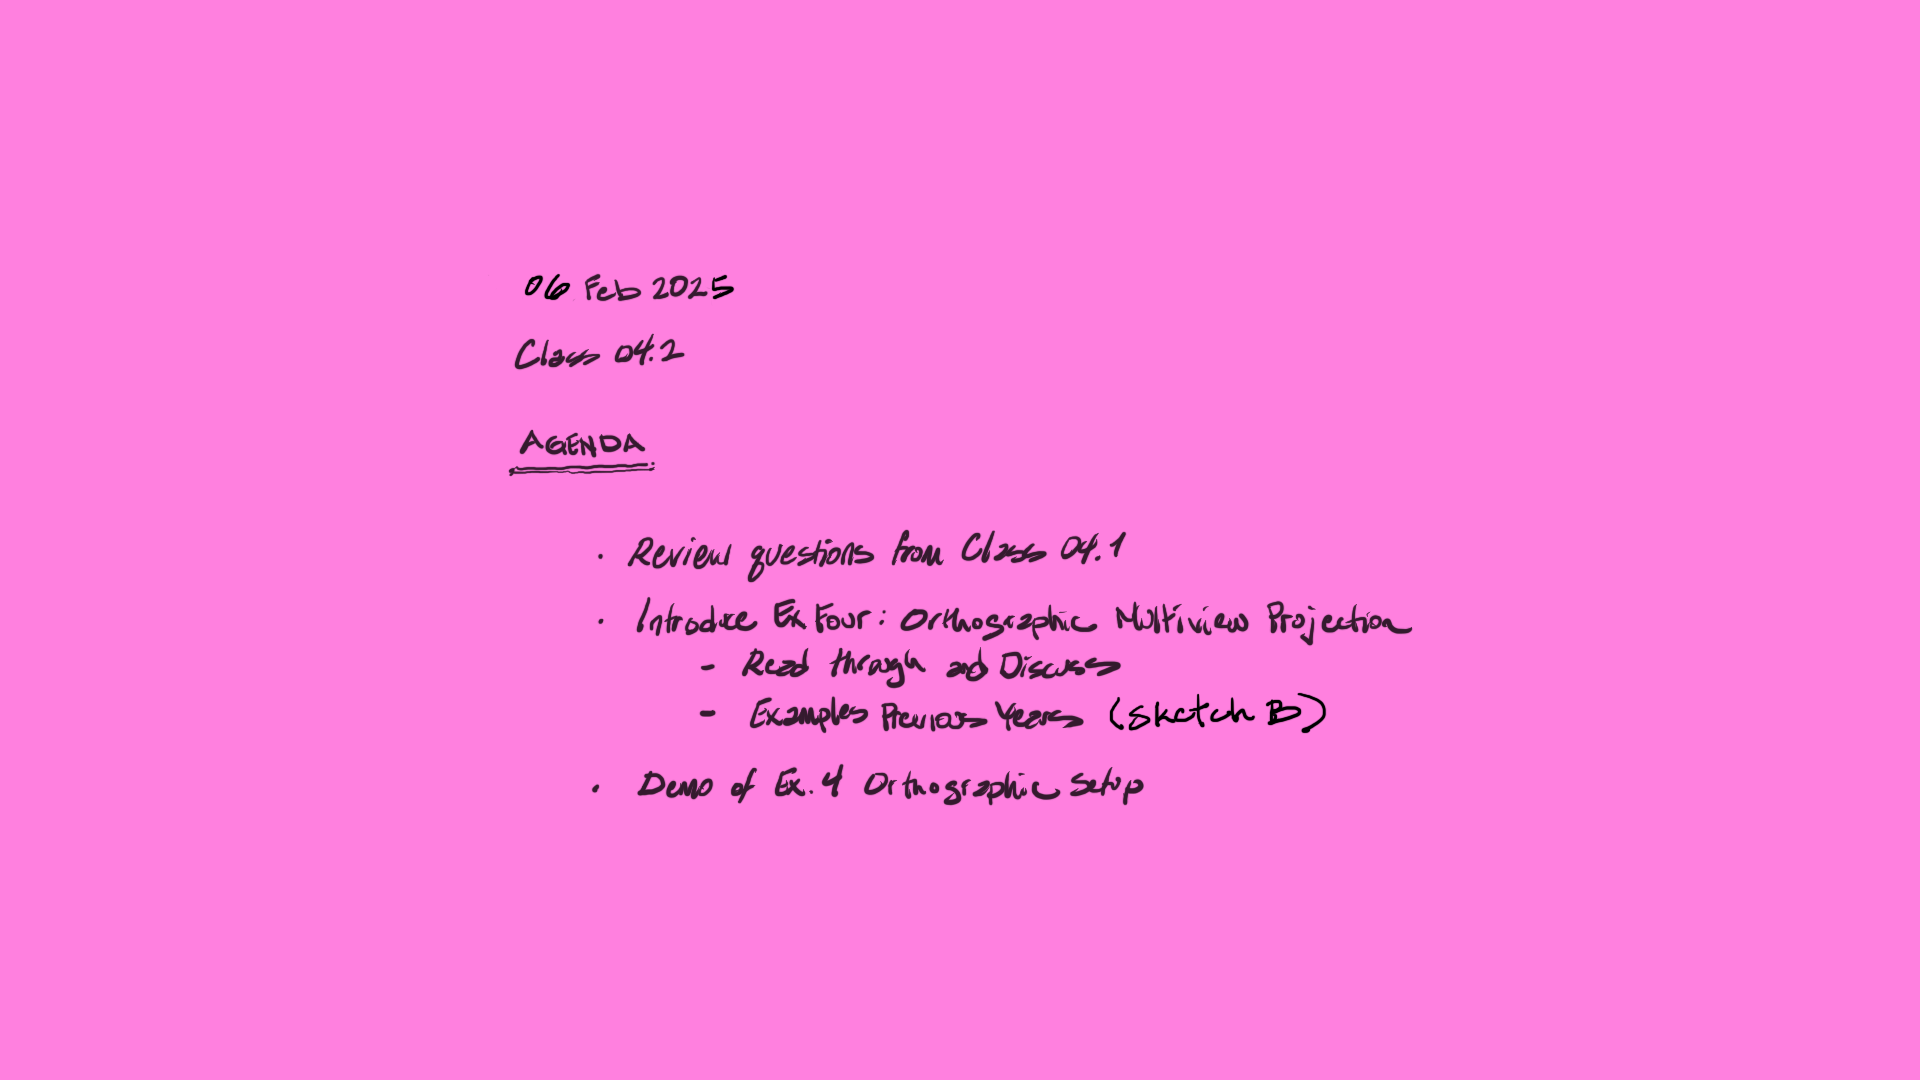 06 Feb 2025
Class 04.2
AGENDA
· Review questions from Class 04.1
· Introduce Ex Four: Orthographic Multiview Projection
- Read through and Discuss
- Examples Previous Years (Sketch B)
· Demo of Ex. 4 Orthographic Setup